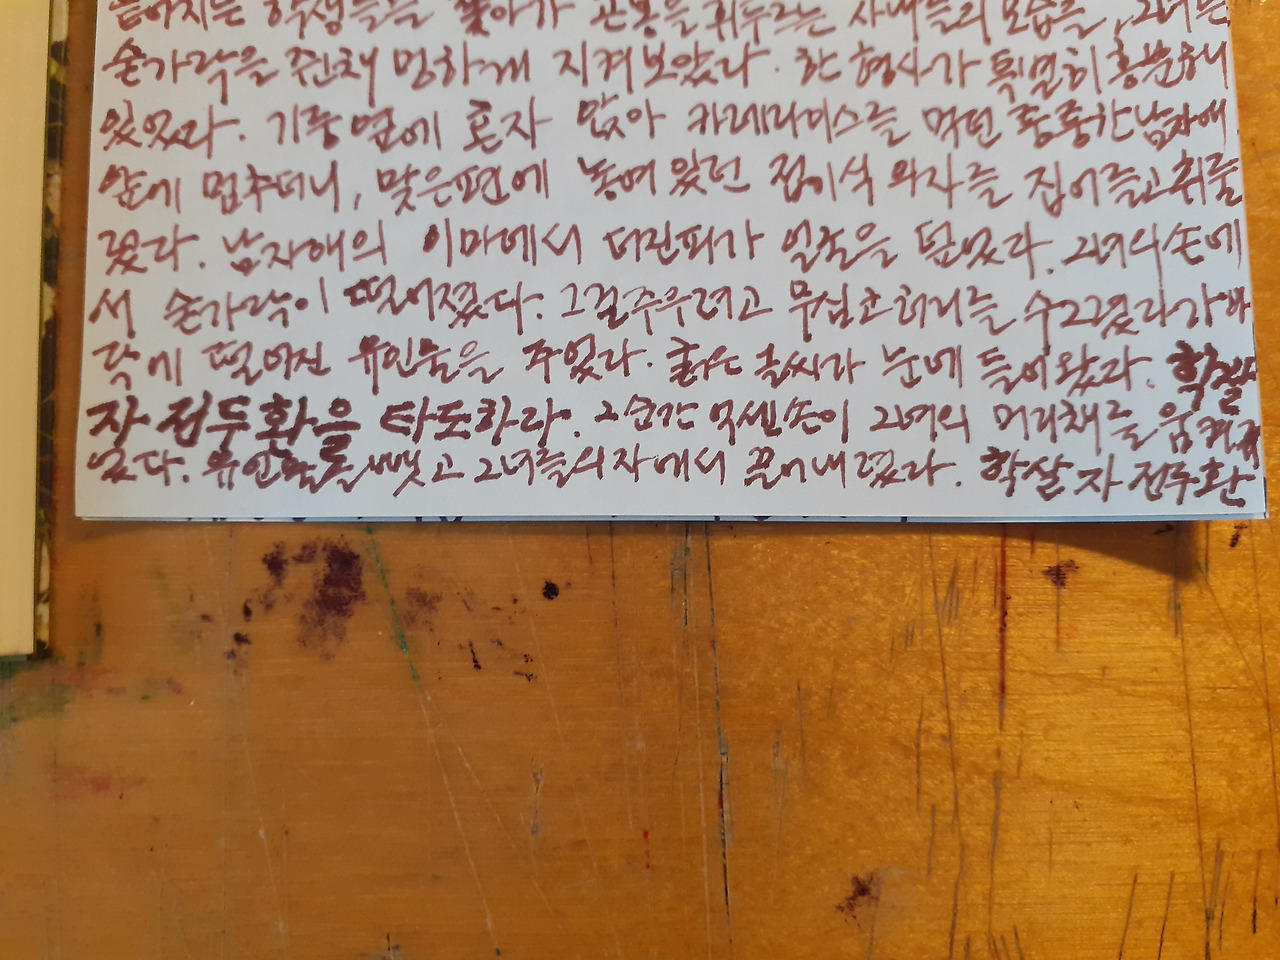 흩어지는 학생들을 쫓아가 곤봉을 휘두르는 사내들의 모습을, 그녀는
숟가락을 쥔채 멍하게 지켜보았다. 한 형사가 특별히 흥분해
있었다. 기둥 옆에 혼자 앉아 카레라이스를 먹던 통통한 남자애
앞에 멈추더니, 맞은편에 놓여 있던 접이식 의자를 집어들고 휘둘
렀다. 남자애의 이마에서 터진피가 얼굴을 덮었다. 그녀의 손에
서 숟가락이 떨어졌다. 그걸 주우려고 무심코 허리를 수그렸다가 바
닥에 떨어진 유인물을 주웠다. 굵은 글씨가 눈에 들어왔다. 학살
자 전두환을 타도하라. 그순간 억센 손이 그녀의 머리채를 움켜쥐
었다. 유인물을 빼앗고 그녀를 의자에서 끌어내렸다. 학살자 전두환